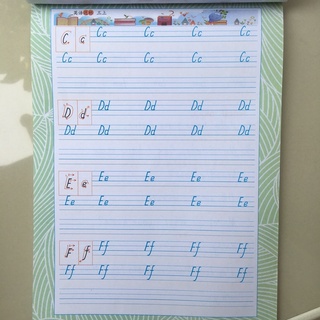 英语 三上
C c Cc Cc Cc Cc
Cc Cc Cc Cc Cc
D d Dd Dd Dd Dd
Dd Dd Dd Dd Dd
E e Ee Ee Ee Ee
Ee Ee Ee Ee Ee
F f Ff Ff Ff Ff
Ff Ff Ff Ff Ff